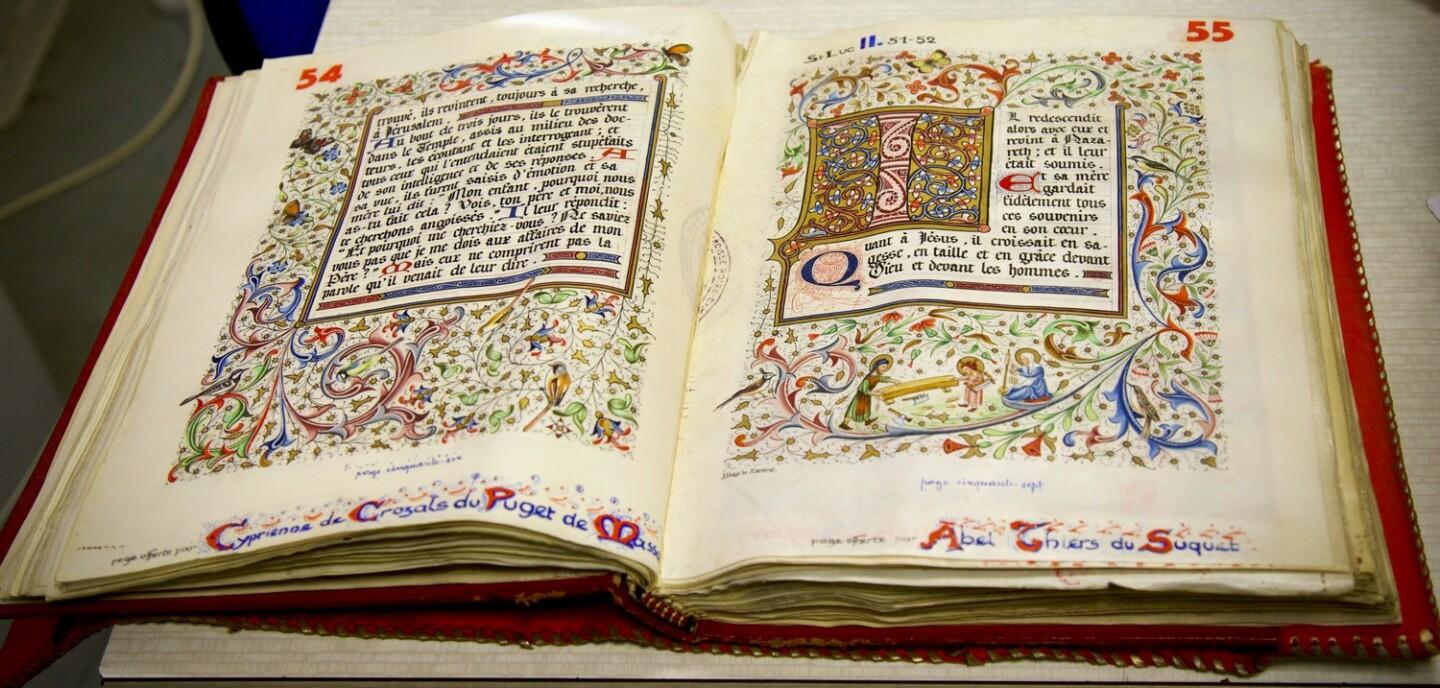 54
trouvé, ils revinrent, toujours à sa recherche,
à Jérusalem.
Au bout de trois jours, ils le trouvèrent
dans le Temple, assis au milieu des doc-
teurs, les écoutant et les interrogeant ; et
tous ceux qui l'entendaient étaient stupéfaits
de son intelligence et de ses réponses. A
sa vue, ils furent saisis d'émotion et sa
mère lui dit : "Mon enfant, pourquoi nous
as-tu fait cela ? Vois, ton père et moi, nous
te cherchons angoissés." Il leur répondit :
"Et pourquoi me cherchiez-vous ? Ne saviez
vous pas que je me dois aux affaires de mon
Père ?" Mais eux ne comprirent pas la
parole qu'il venait de leur dire.
page cinquante-six
page offerte par Cyprienne de Crozals du Puget de
St Luc II. 51-52
55
IL redescendit
alors avec eux et
revint à Naza-
reth ; et il leur
était soumis.
Et sa mère
gardait
fidèlement tous
ces souvenirs
en son cœur.
Quant à Jésus, il croissait en sa-
gesse, en taille et en grâce devant
Dieu et devant les hommes.
page cinquante-sept
page offerte par Abel Thiers du Suquet